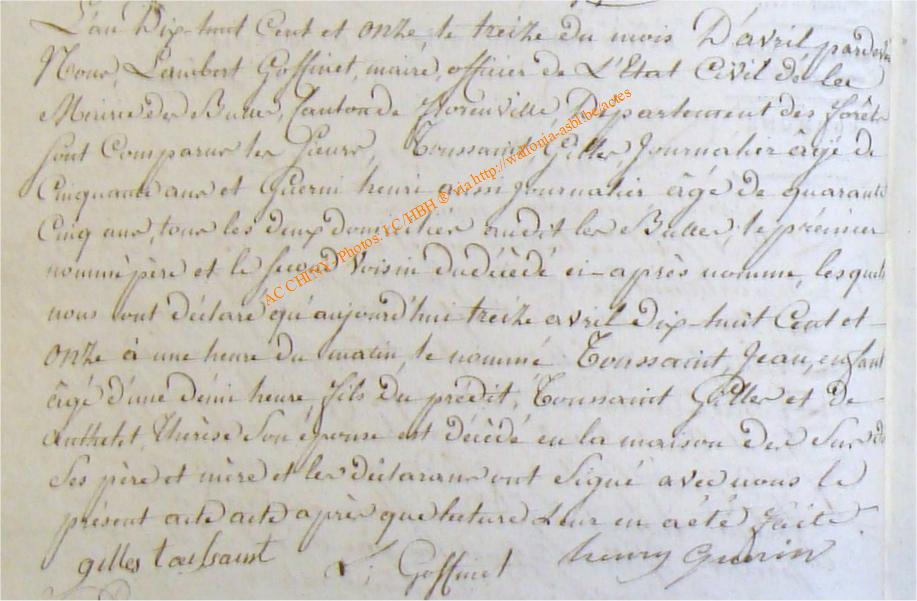 L'an Dix-huit Cent et onze, le treize du mois D'avril pardevant
Nous, Lambert Goffinet, maire, officier de L'Etat Civil de la
Mairie des Bulles, Canton de Florenville Département des forêts
sont Comparus les Sieurs, Toussaint, Gilles, Journalier âgé de
Cinquante ans et Guerin henri aussi journalier âgé de quarante
Cinq ans, tous les deux domiciliés audit les Bulles, le prémier
nommé père et le second Voisin du décédé ci-après nommé, lesquels
nous ont déclaré qu'aujourd'hui treize avril dix-huit Cent et
onze à une heure du matin, le nommé Toussaint, Jean, enfant
âgé d'une démi heure, fils du prédit, Toussaint Gilles et de
Thérèse Son épouse est décédé en la maison des
Ses père et mère et les déclarans ont signé avec nous le
présent acte acte après que lecture Leur en a été faite.
gilles toussaint
L; Goffinet
henry guerin
AC CHINY Photos: LC/HBH ® via http://wallonia-asbl.be/actes